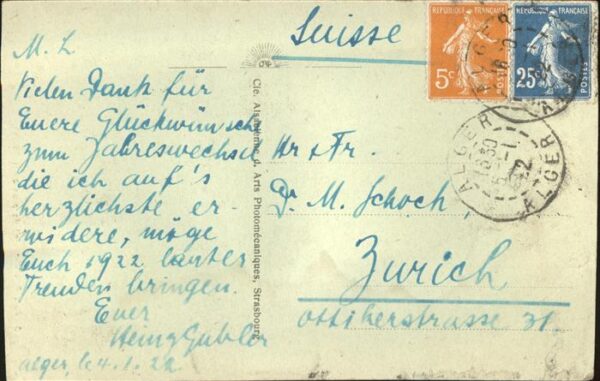 M. L
Vielen Dank für
Euere Glückwünsche
zum Jahreswechsel
die ich auf's
herzlichste er-
widere, möge
Euch 1922 lauter
Freuden bringen.
Euer
Heinz Gubler
Alger, le 4.1.22
Cie. Alsacienne d. Arts Photomécaniques, Strasbourg
Suisse
RÉPUBLIQUE FRANÇAISE
5c
POSTES
RÉPUBLIQUE FRANÇAISE
25c
POSTES
ALGER
5-1
22
ALGER
Hr & Fr.
Dr. M. Schoch,
Zurich
31.